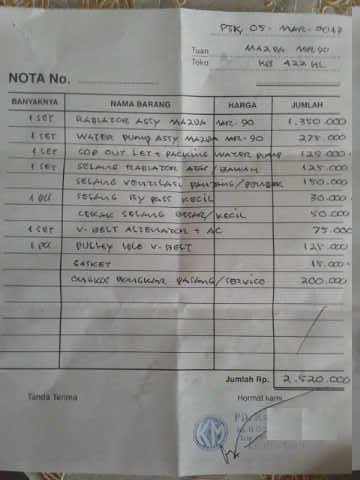 PTK, 05 - MAR - 2017
Tuan MAZDA MR90
Toko KB 422 HL
NOTA No.
BANYAKNYA NAMA BARANG HARGA JUMLAH
1 SET RADIATOR ASSY MAZDA MR-90 1.350.000
1 SET WATER PUMP ASSY MAZDA MR-90 275.000
1 SET COP OUT LET + PACKING WATER PUMP 125.000
1 SET SELANG RADIATOR ATAS/BAWAH 125.000
SELANG VENTILASI PANJANG/PENDEK 150.000
1 pcs SELANG BY PASS KECIL 30.000
CEKAK SELANG BESAR/KECIL 50.000
1 SET V-BELT ALTENATOR + AC 75.000
1 pcs PULLEY IDLE V-BELT 125.000
GASKET 15.000
ONGKOS BONGKAR PASANG/SERVICE 200.000
Jumlah Rp. 2.520.000
Tanda Terima Hormat kami,
KM